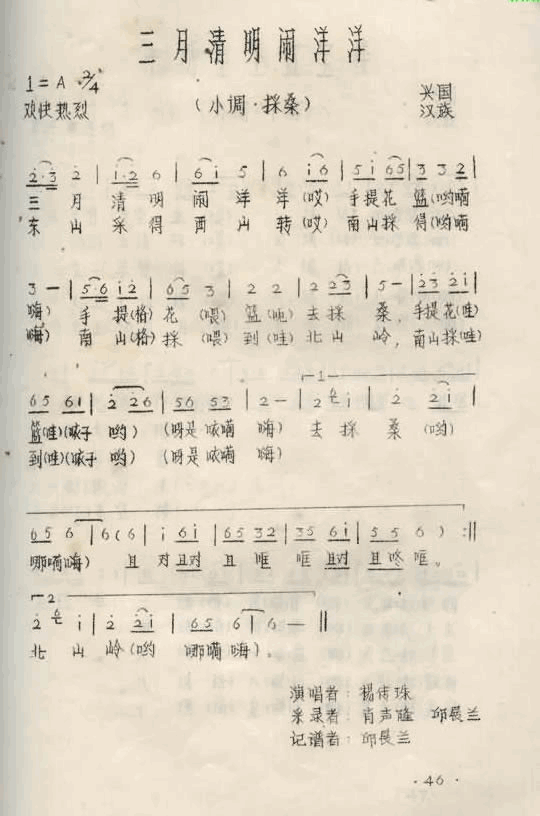 三月清明闹洋洋
1=A 2/4
(小调·採桑)
兴国
欢快热烈
汉族
2·3 2 | 1·2 6 | 6i 5 | 6 i6 | 5i 65 | 3 32 |
三 月 清 明 闹 洋 洋(哎) 手提花 篮(哟嗬
东 山 采 得 西 山 转(哎) 南山採 得(哟嗬
3 — | 5·6 i2 | 65 3 | 2 2 | 2 23 | 5 — | 23 2i |
嗨) 手 提(格) 花 (喂) 篮(吔) 去 採 桑, 手提花(哇)
嗨) 南 山(格) 採 (喂) 到(哇) 北 山 岭, 南山採(哇)
1
65 61 | 2 26 | 56 53 | 2 — | 2 i | 2 2i |
篮(哇)(哝子 哟) (呀是哝嗬 嗨) 去 採 桑 (哟)
到(哇)(哝子 哟) (呀是哝嗬 嗨)
65 6 | 6 (6 | i 6i | 65 32 | 35 6i | 55 6 ) :||
哪嗬嗨) 且 对且对 且 哐 哐 且对 且咚哐。
2
2 i | 2 2i | 65 6 | 6 — ||
北 山 岭(哟 哪嗬嗨)。
演唱者:楊传珠
采录者:肖声隆 邱晨兰
记谱者:邱晨兰
·46·